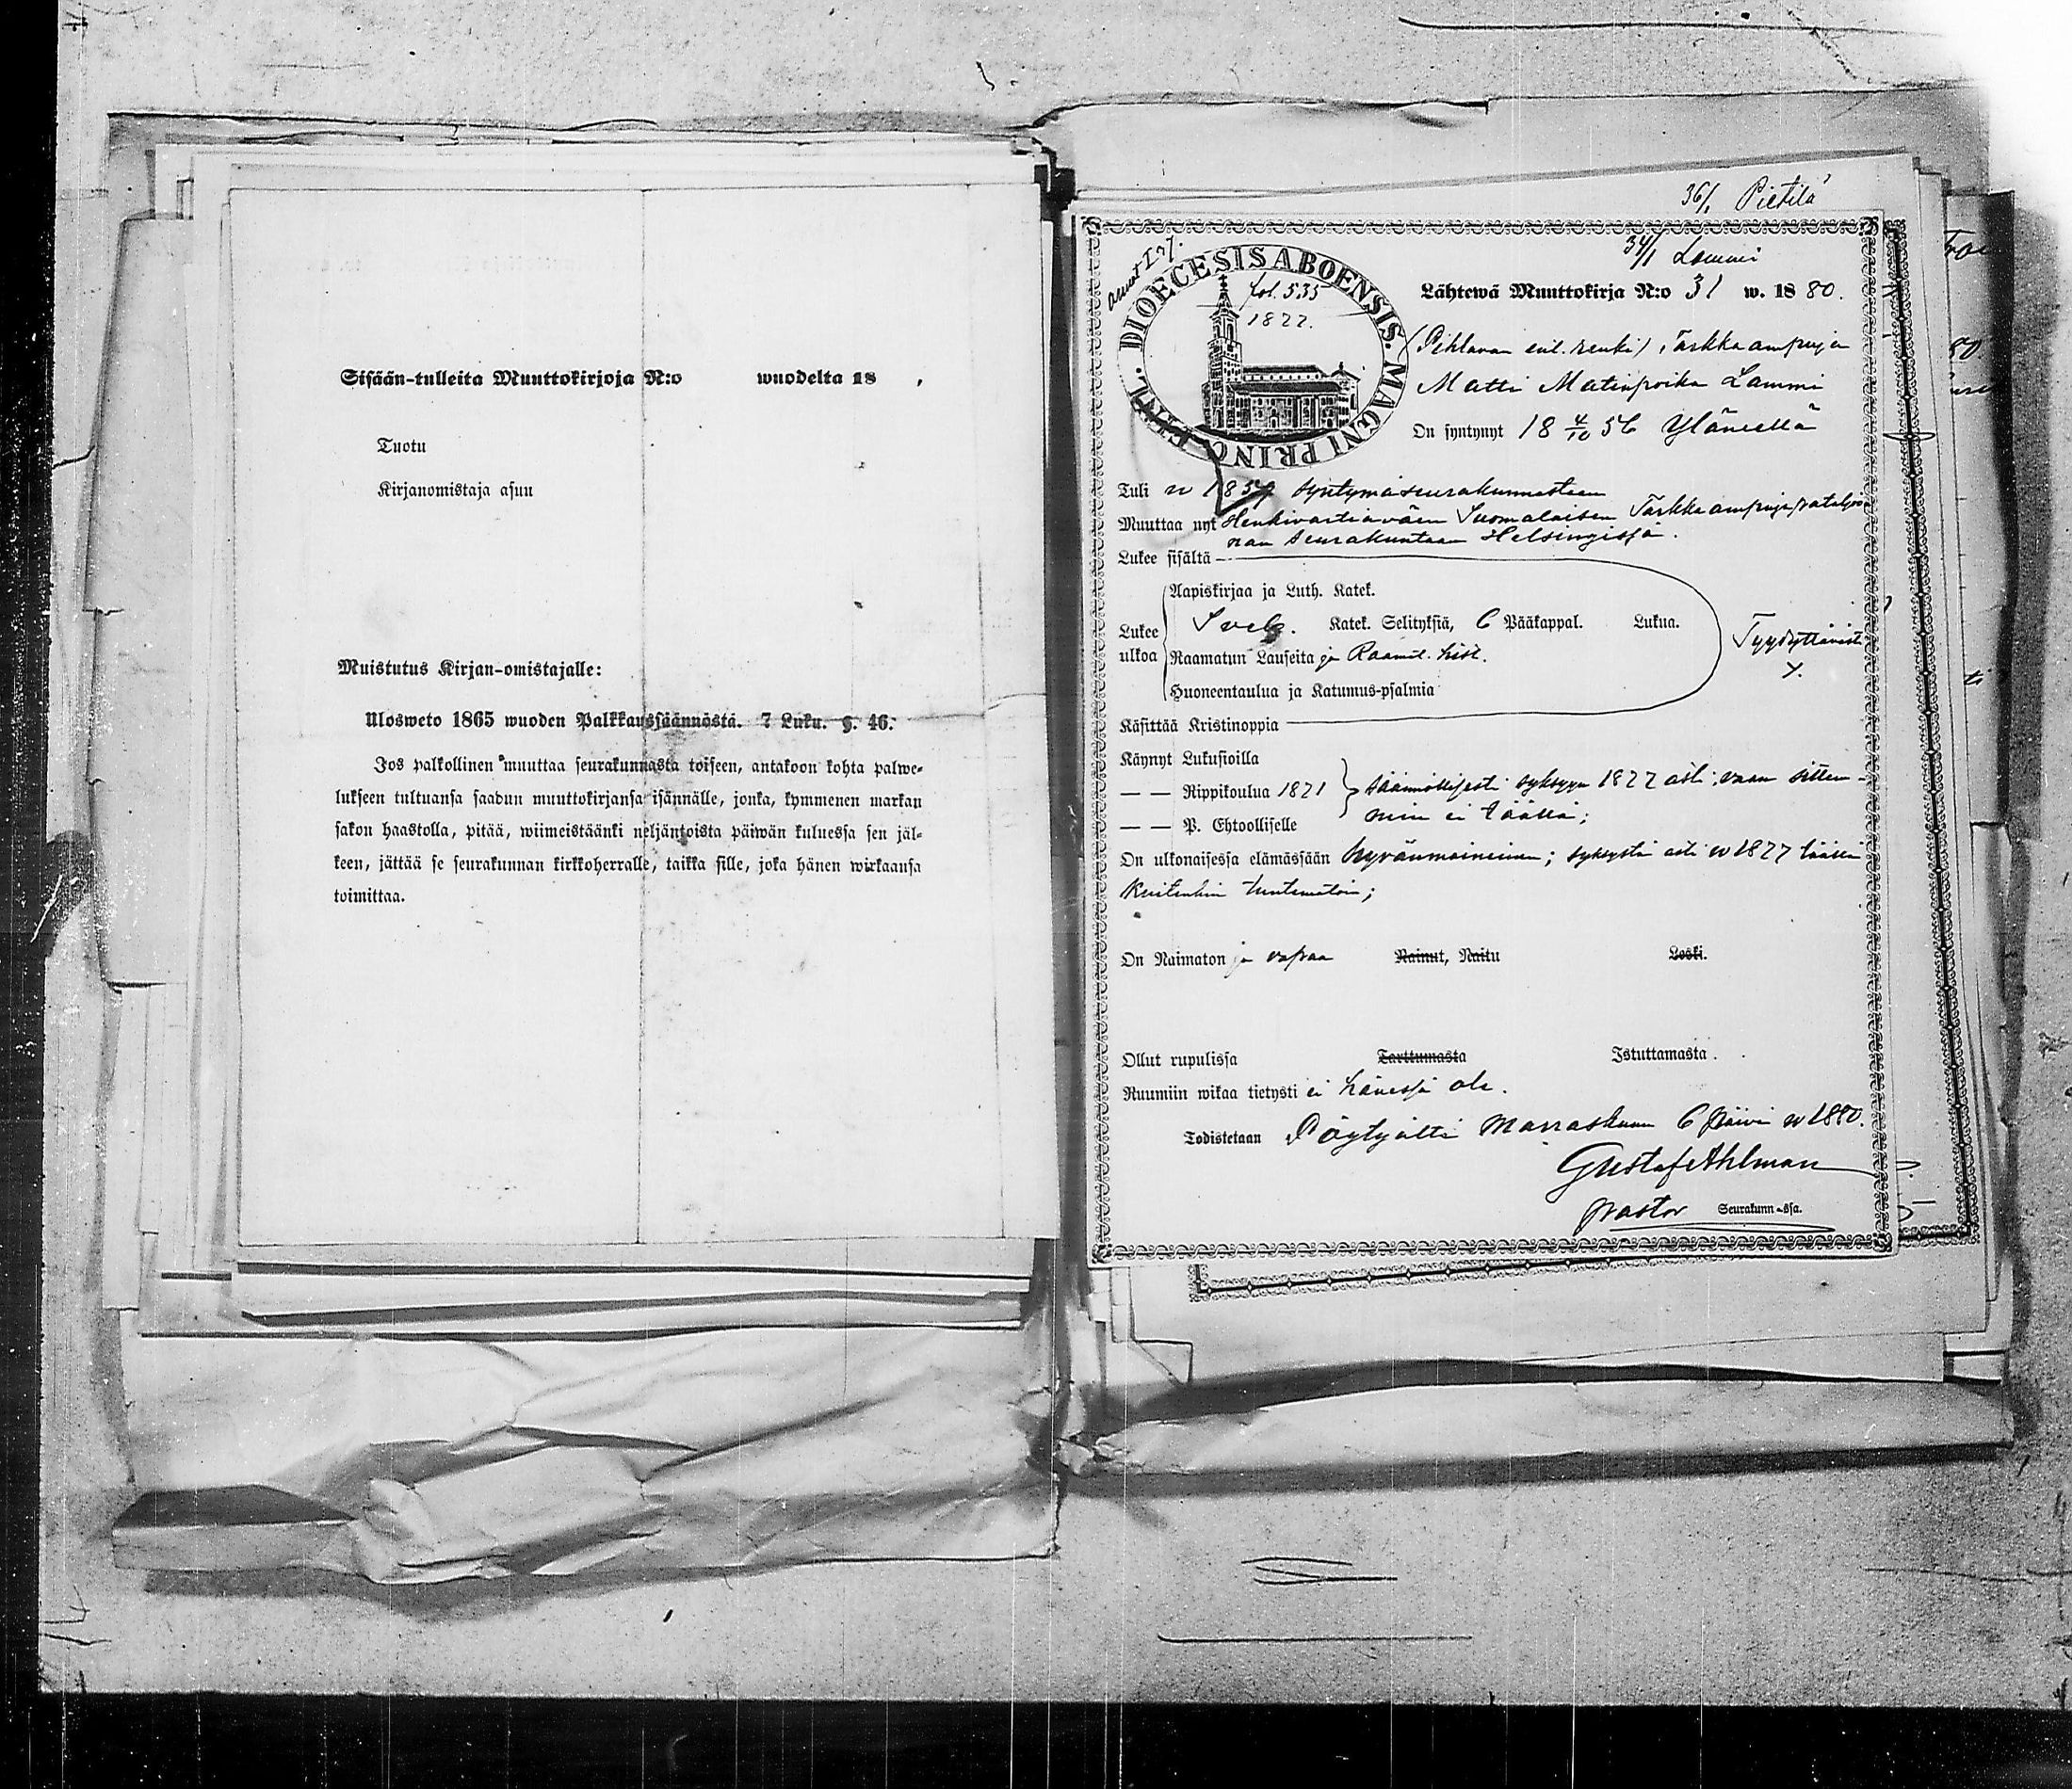 Sisään-tulleita Muuttokirjoja N:o wuodelta 18 .
Tuotu
Kirjanomistaja asuu
Muistutus Kirjan-omistajalle:
Ulosweto 1865 wuoden Palkkaussäännöstä. 7 Luku. §. 46.
Jos palkollinen muuttaa seurakunnasta toiseen, antakoon kohta palwe-
lukseen tultuansa saadun muuttokirjansa isännälle, jonka, kymmenen markan
sakon haastolla, pitää, wiimeistäänki neljäntoista päiwän kuluessa sen jäl-
keen, jättää se seurakunnan kirkkoherralle, taikka sille, joka hänen wirkaansa
toimittaa.
36/1 Pietilä
34/1 Lammi
DIOECESIS ABOENSIS. MAGNI PRINC. FINL.
fol. 535
1877.
Lähtewä Muuttokirja N:o 31 w. 1880.
(Pihlavan ent. renki) Tarkkaampuja
Matti Matinpoika Lammi
On syntynyt 18 4/10 56 Yläneellä
Tuli w 1857 syntymäseurakunnastaan
Muuttaa nyt Henkivartiaväen Suomalaisen Tarkkaampujapataljo
nan Seurakuntaan Helsingissä.
Lukee sisältä
Aapiskirjaa ja Luth. Katek.
Lukee ulkoa Sveb. Katek. Selityksiä, 6 Pääkappal. Lukua.
Raamatun Lauseita ja Raamat. hist.
Tyydyttäväst
y.
Huoneentaulua ja Katumus-psalmia
Käsittää Kristinoppia
Käynyt Lukusioilla
— — Rippikoulua 1871 säännöllisesti syksyyn 1877 asti; vaan sitten-
min ei täällä;
— — P. Ehtoolliselle
On ulkonaisessa elämässään hyvänmaineinen; syksystä asti w 1877 täällä
kuitenkin tuntematoin;
On Naimaton ja vapaa Nainut, Naitu Leski.
Ollut rupulissa Tarttumasta Istuttamasta.
Ruumiin wikaa tietysti ei hänessä ole.
Todistetaan Pöytyältä Marraskuun 6 päivä w 1880.
Gustaf Ahlman
pastor Seurakunn-ssa.